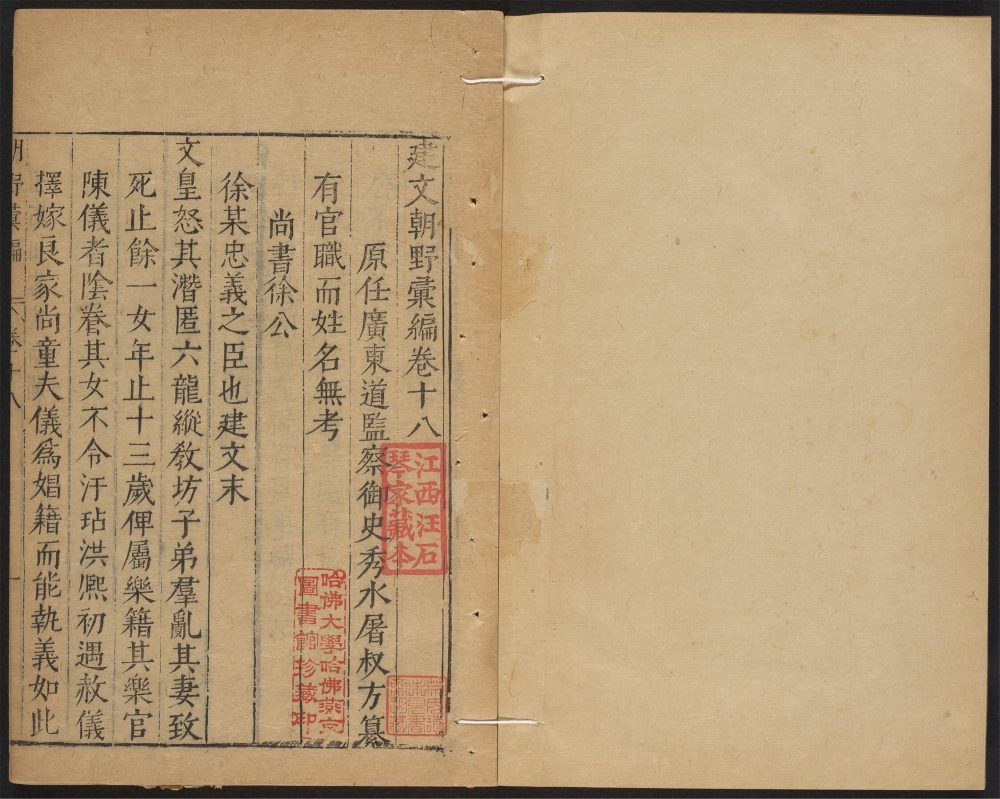 建文朝野彙編卷十八
原任廣東道監察御史秀水屠叔方纂
有官職而姓名無考
尚書徐公
徐某忠義之臣也建文末
文皇怒其潛匿六龍縱教坊子弟羣亂其妻致
死止餘一女年止十三歲俾屬樂籍其樂官
陳儀者陰養其女不令汙玷洪熈初遇赦儀
擇嫁良家尚童夫儀爲娼籍而能執義如此
朝野彙編 卷十八 一
江西汪石
琴家藏本
哈佛大學哈佛燕京
圖書館珍藏印